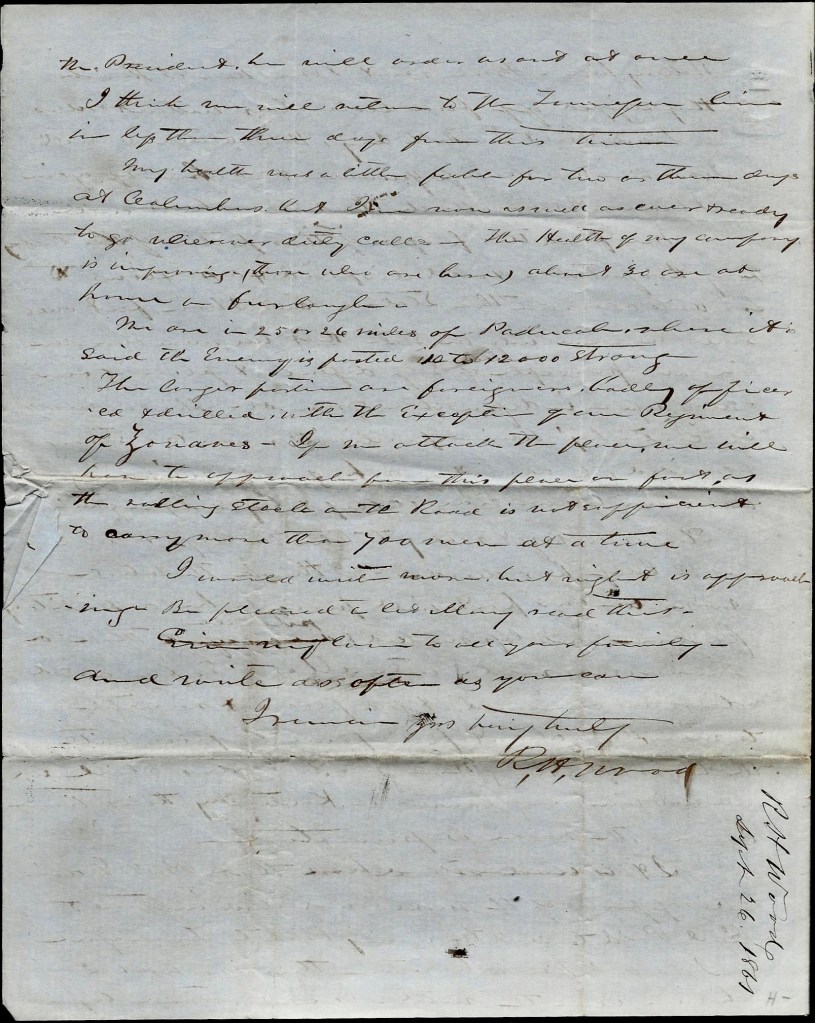 the President. he will order us out at once
I think we, will return to the Tennessee line
in less than three days from this time
My health was a little feeble for two or three days
at Columbus. but I am now as well as ever & ready
to go wherever duty calls — The Health of my company
is improving, (those who are here,) about 30 are at
home on furlough
We are in 25 or 26 miles of Paducah, where it is
said the Enemy is posted 10 to 12000 strong
The larger portion are foreigners. badly officer
-ed & drilled, with the Exception of one Regiment
of Zouaves — If we attack the place, we will
have to approach from this place on foot, as
the rolling Stock on the Road is not sufficient
to carry more than 700 men at a time
I would write more. but night is approach
-ing. Be pleased to let Mary read this -
Give my love to all your family -
And write as often as you can
I remain yrs very truly
R, H, Wood
R H Wood
Sept 26. 1861
H-